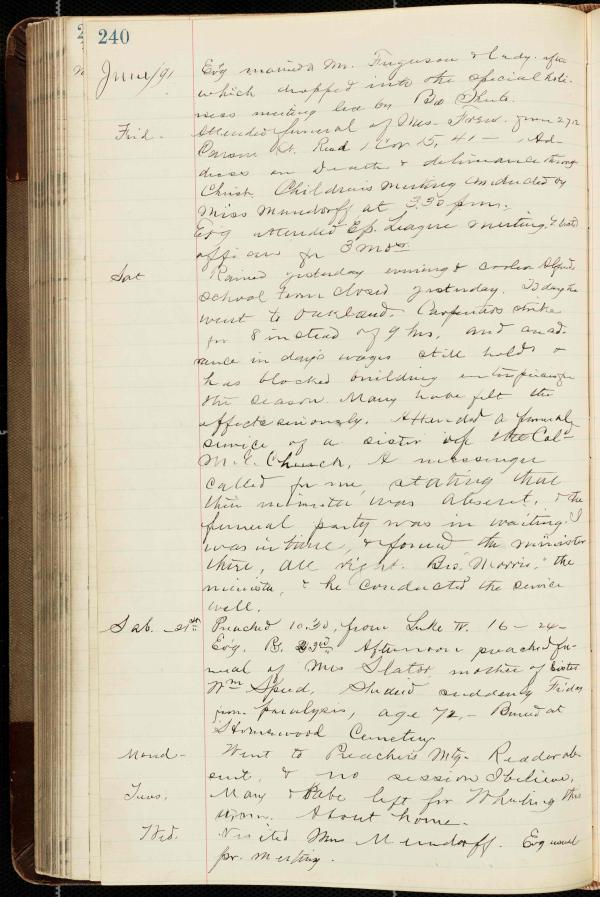 240
June/91
Ev'g married Mr. Ferguson & lady. after
which dropped into the special holi-
ness meeting led by Bro
Frid. Attended funeral of Mrs. from 272
Carson St. Read 1 Cor 15, 41 — Ad-
dress on Death & deliverance through
Christ. Children's meeting conducted by
Miss Mundorff at 3.30 p.m.
Ev'g attended Ep. League meeting, &
officers for 3 mos.
Sat Rained yesterday evening & cooler
school term closed yesterday. To day he
went to Oakland. Carpenters strike
for 8 instead of 9 hrs, and an ad-
vance in day's wages still holds &
has blocked building enterprise for
the season. Many have felt the
effects seriously. Attended a funeral
service of a sister of the Col-
M.E. Church. A messenger
called for me stating that
their minister was absent, & the
funeral party was in waiting. I
was in time, & found the minister
there, all right. Bro. Morris, the
minister, & he conducted the service
well.
Sab. 21st Preached 10.30, from Luke IV. 16 — 24 —
Ev'g. Ps. 23rd Afternoon preached fu-
neral of Mrs Slator mother of Sister
Wm Speed. She died suddenly Friday
from paralysis, age 72, — Buried at
Homewood Cemetery
Mond — Went to Preachers Mtg. Reader ab-
sent, & no session I believe,
Tues. Mary & Babe left for Wheeling this
morn. About home.
Wed. Visited Mrs Mundorff. Ev'g usual
pr. meeting.